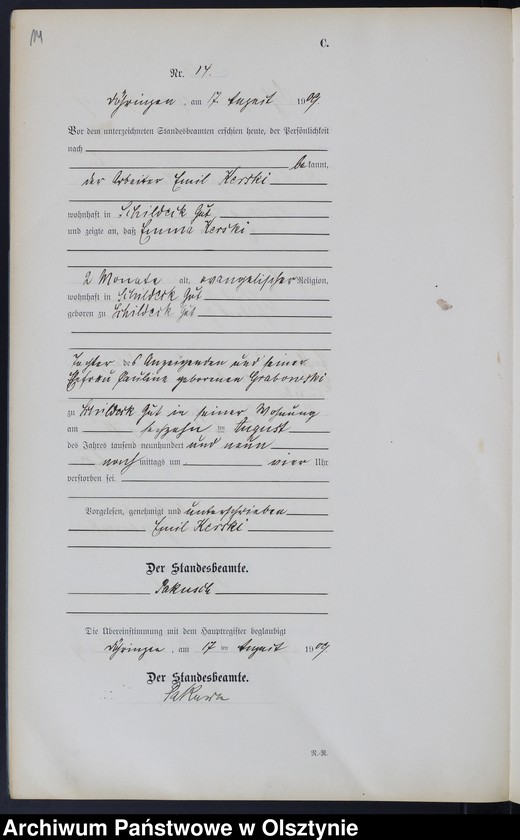 14
C.
Nr. 14.
Döhringen, am 17. August 1909.
Vor dem unterzeichneten Standesbeamten erschien heute, der Persönlichkeit
nach
bekannt,
der Arbeiter Emil Kerski
wohnhaft in Schildeck Gut,
und zeigte an, daß Emma Kerski
2 Monate alt, evangelischer Religion,
wohnhaft in Schildeck Gut
geboren zu Schildeck Gut
Tochter des Anzeigenden und seiner
Ehefrau Pauline geborenen Grabowski
zu Schildeck Gut in seiner Wohnung
am sechzehn ten August
des Jahres tausend neunhundert und neun
nachmittags um vier Uhr
verstorben sei.
Vorgelesen, genehmigt und unterschrieben
Emil Kerski
Der Standesbeamte.
Die Übereinstimmung mit dem Hauptregister beglaubigt
Döhringen, am 17 ten August 1909.
Der Standesbeamte.
N.-R.
Archiwum Państwowe w Olsztynie